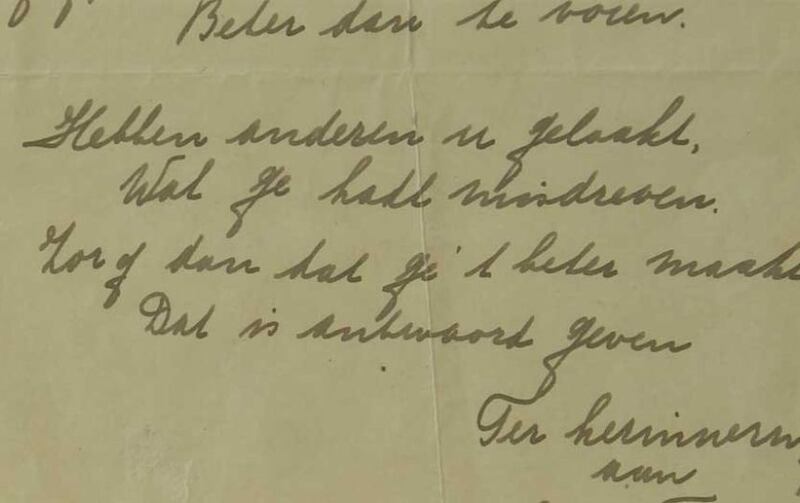 Beter dan te voren.
Hebben anderen u gelaakt,
Wat ge hadt misdreven.
Zorg dan dat ge 't beter maakt
Dat is antwoord geven
Ter herinnerin
aan